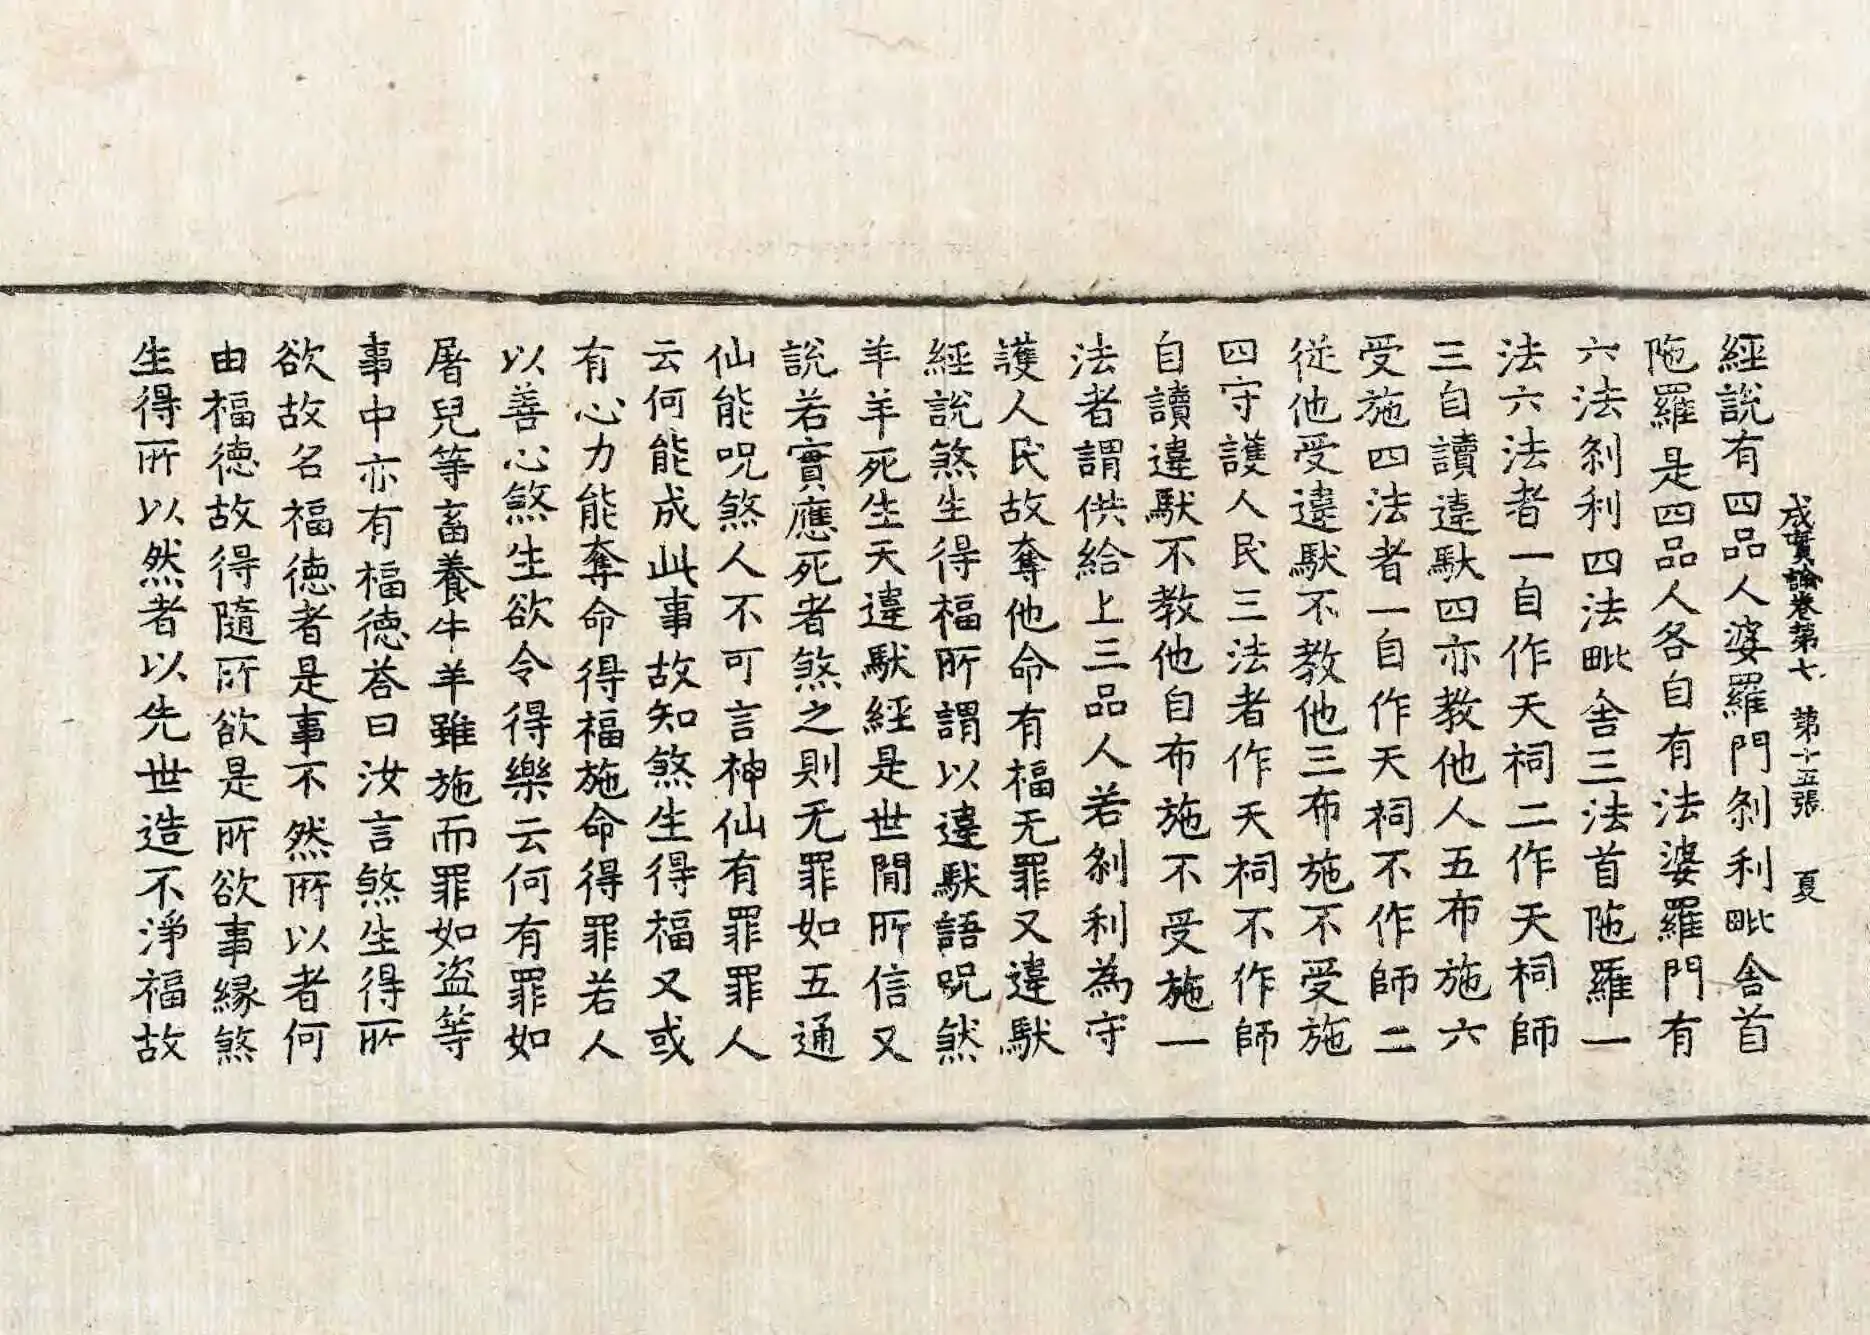 成實論卷第七 第十五張 夏
經說有四品人婆羅門刹利毗舍首
陁羅是四品人各自有法婆羅門有
六法刹利四法毗舍三法首陁羅一
法六法者一自作天祠二作天祠師
三自讀違馱四亦教他人五布施六
受施四法者一自作天祠不作師二
従他受違馱不教他三布施不受施
四守護人民三法者作天祠不作師
自讀違馱不教他自布施不受施一
法者謂供給上三品人若刹利為守
護人民故奪他命有福无罪又違馱
經說煞生得福所謂以違馱語呪煞
羊羊死生天違馱經是世閒所信又
說若實應死者煞之則无罪如五通
仙能呪煞人不可言神仙有罪罪人
云何能成此事故知煞生得福又或
有心力能奪命得福施命得罪若人
以善心煞生欲令得樂云何有罪如
屠兒等畜養牛羊雖施而罪如盗等
事中亦有福徳荅曰汝言煞生得所
欲故名福徳者是事不然所以者何
由福徳故得隨所欲是所欲事縁煞
生得所以然者以先世造不淨福故